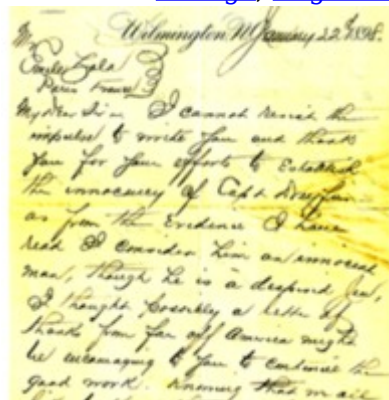 Wilmington, N.C. January 22nd 1898.
Mr
Emile Zola
Paris France
My dear Sir I cannot resist the
impulse to write you and thank
you for your efforts to Establish
the innocency of Capt Dreyfus
as from the Evidence I have
read I consider him an innocent
man, though he is a despised Jew,
I thought Possibly a letter of
thanks from far off America might
be encouraging to you to continue the
good work. Knowing that mail